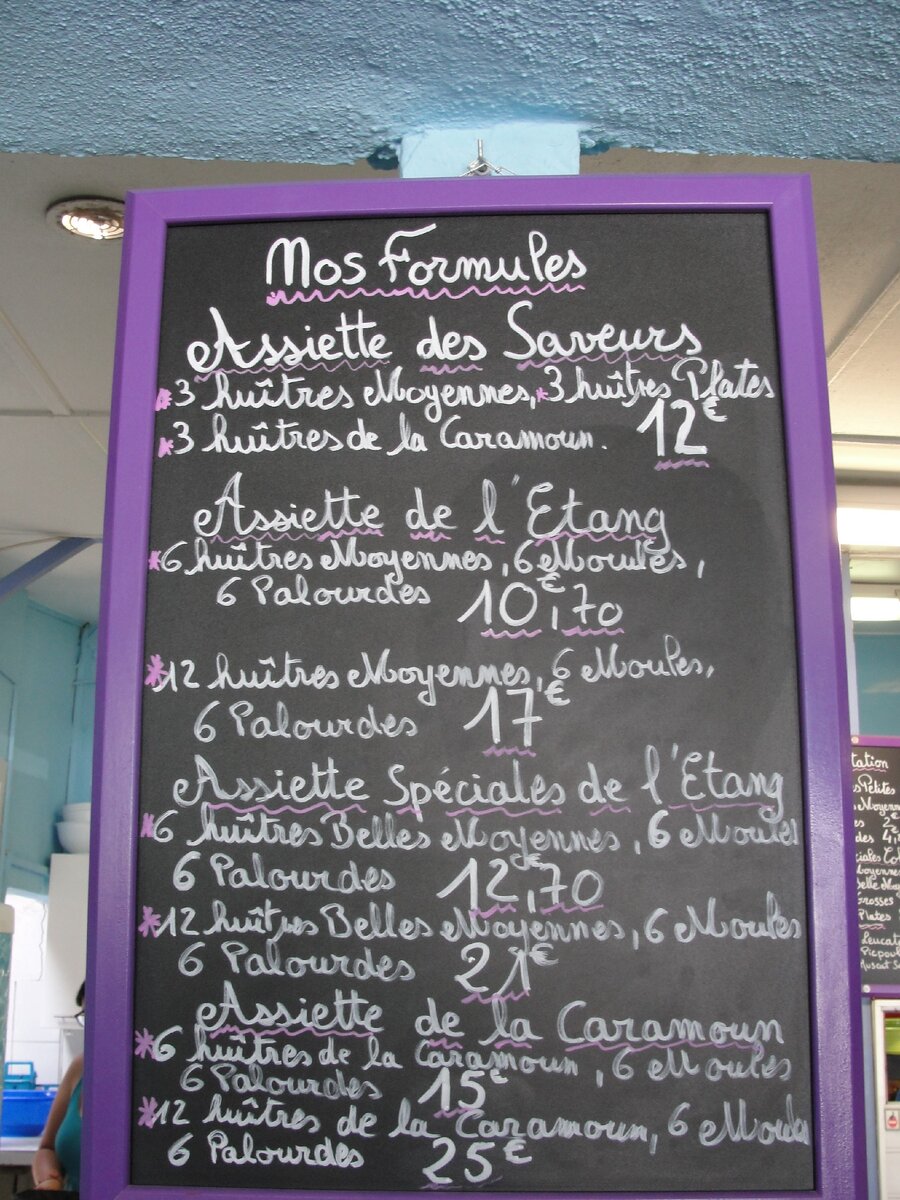 Mos Formules
Assiette des Saveurs
*3 huîtres Moyennes, *3 huîtres Plates
*3 huîtres de la Caramoun. 12€
Assiette de l'Etang
*6 huîtres Moyennes, 6 Moules,
6 Palourdes 10€,70
*12 huîtres Moyennes, 6 Moules,
6 Palourdes 17€
Assiette Spéciales de l'Etang
*6 huîtres Belles Moyennes, 6 Moules
6 Palourdes 12€,70
*12 huîtres Belles Moyennes, 6 Moules
6 Palourdes 21€
Assiette de la Caramoun
*6 huîtres de la Caramoun, 6 Moules
6 Palourdes 15€
*12 huîtres de la Caramoun, 6 Moules
6 Palourdes 25€
tation
Petites
Moyenn
Grosses
Plates
Leucat
Picpoul
Muscat